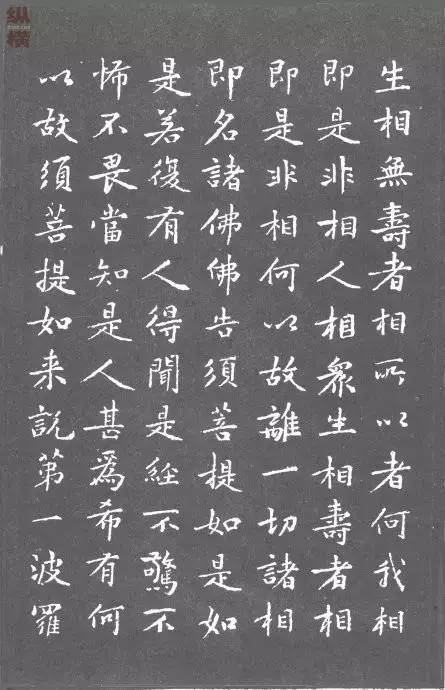 生相無壽者相所以者何我相
即是非相人相眾生相壽者相
即是非相何以故離一切諸相
即名諸佛佛告須菩提如是如
是若復有人得聞是經不驚不
怖不畏當知是人甚爲希有何
以故須菩提如来説第一波羅
纵横